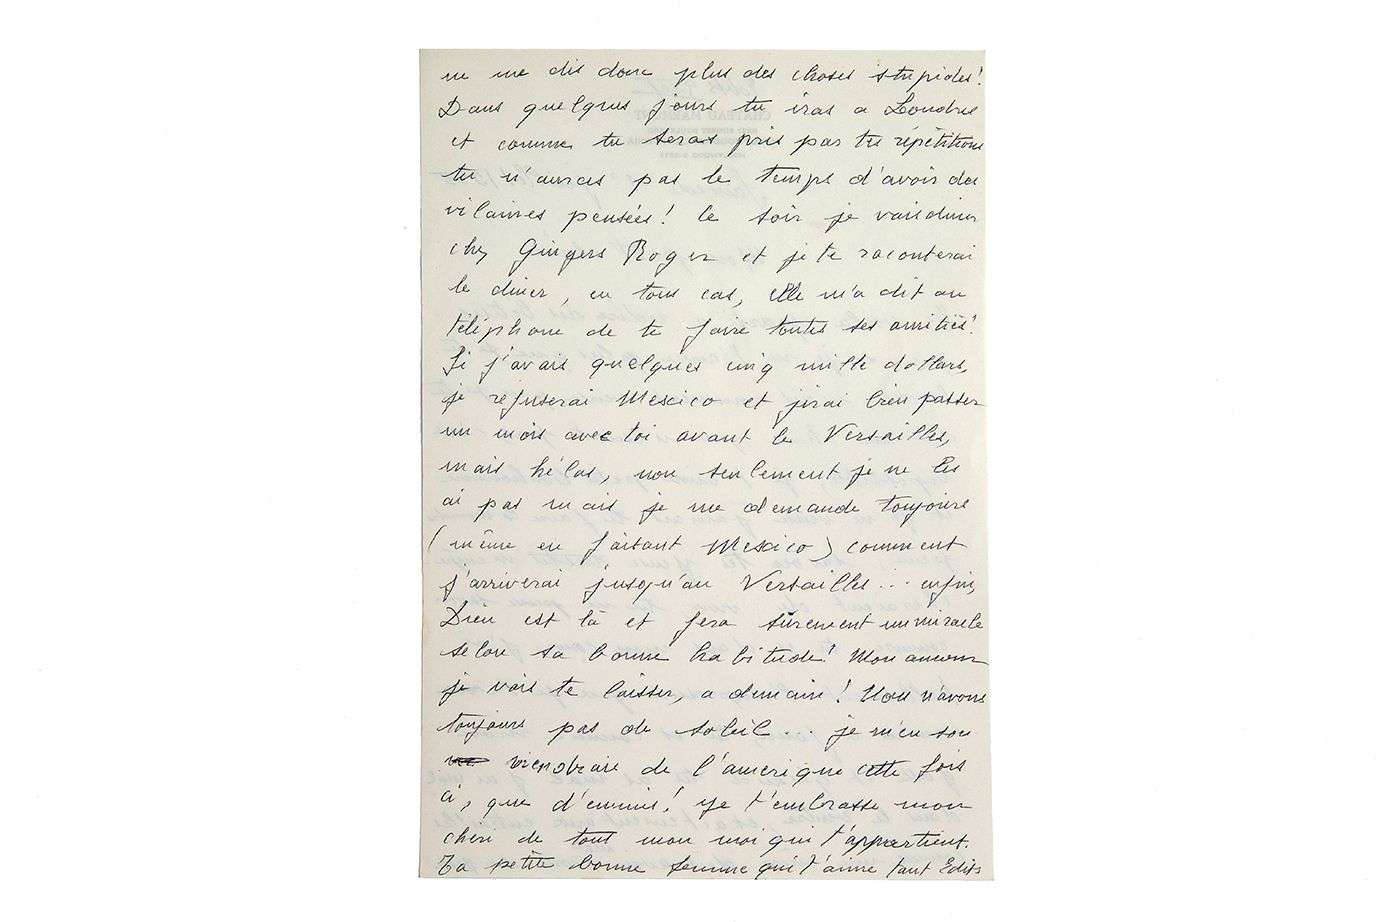 ne me dis donc plus des choses stupides!
Dans quelques jours tu iras a Londres
et comme tu seras pris par tes répétitions
tu n'auras pas le temps d'avoir des
vilaines pensées! le soir je vais diner
chez Gingers Roger et je te raconterai
le diner, en tous cas, elle m'a dit au
téléphone de te faire toutes ses amitiés!
Si j'avais quelques cinq mille dollars,
je refuserai Mexico et j'irai bien passer
un mois avec toi avant le Versailles,
mais hélas, non seulement je ne les
ai pas mais je me demande toujours
(même en faisant Mexico) comment
j'arriverai jusqu'au Versailles... enfin,
Dieu est là et fera sûrement un miracle
selon sa bonne habitude! Mon amour
je vais te laisser, a demain! Nous n'avons
toujours pas de soleil... je m'en sou
viendrai de l'amerique cette fois
ci, que d'ennuis! je t'embrasse mon
cheri de tout mon moi qui t'appartient.
Ta petite bonne femme qui t'aime tant Edith